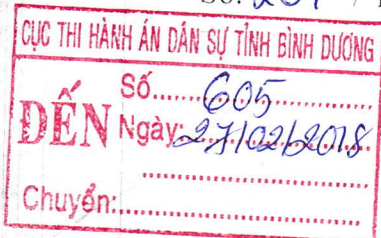 Số:
CỤC THI HÀNH ÁN DÂN SỰ TỈNH BÌNH DƯƠNG
ĐẾN
Số 605
Ngày 27/02/2018
Chuyển: